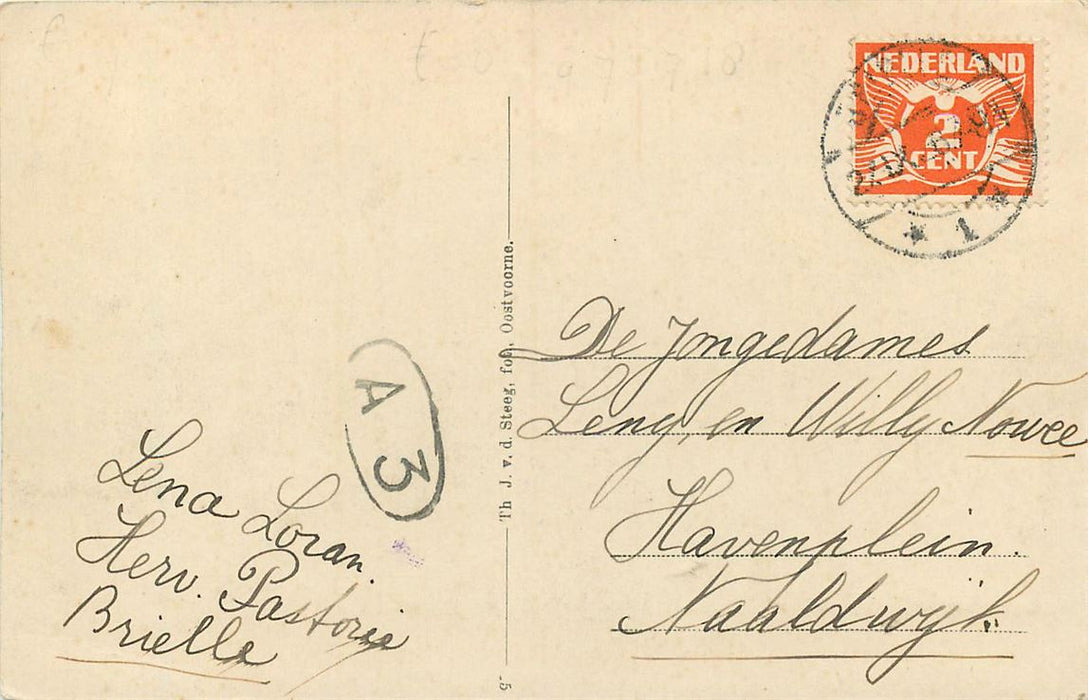 Lena Loran.
Herv. Pastorie
Brielle
A 3
Th J. v. d. Steeg, fot., Oostvoorne.
5
NEDERLAND
2
CENT
1
De Jongedames
Leny en Willy Nowee
Havenplein.
Naaldwijk.